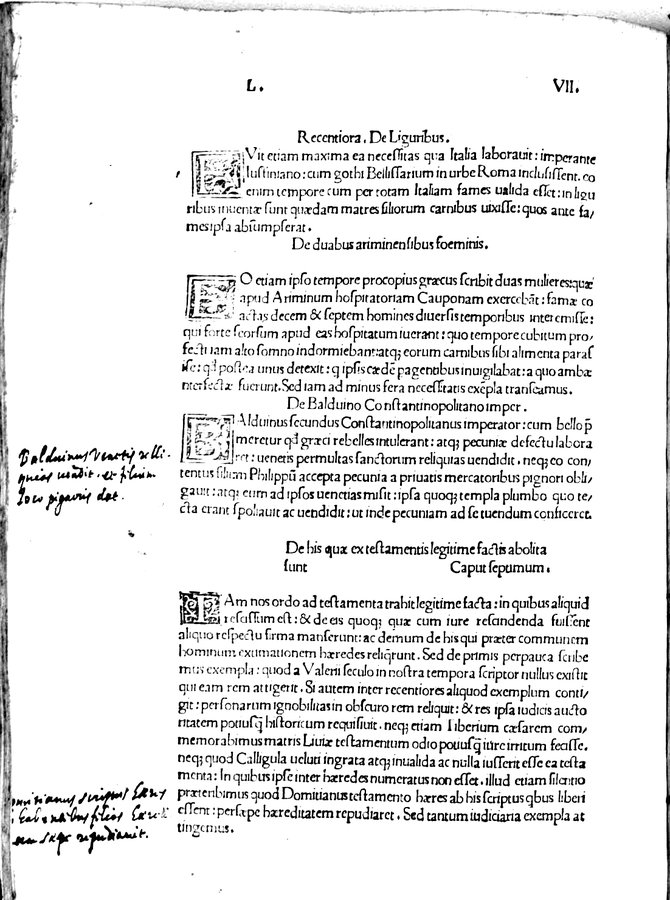 L. VII.
Recentiora. De Liguribus.
Vit etiam maxima ea necessitas qua Italia laborauit: imperante
Iustiniano: cum gothi Bellissarium in urbe Roma inclusissent. eo
enim tempore cum per totam Italiam fames ualida esset: in ligu/
ribus inuentæ sunt quædam matres filiorum carnibus uixisse: quos ante fa/
mes ipsa absumpserat.
De duabus ariminensibus foeminis.
EO etiam ipso tempore procopius græcus scribit duas mulieres: quæ
apud Ariminum hospitatoriam Cauponam exercebāt: famæ co
actas decem & septem homines diuersis temporibus interemisse:
qui forte seorsum apud eas hospitatum iuerant: quo tempore cubitum pro/
fecti iam alto somno indormiebant: atq; eorum carnibus sibi alimenta paras
ise: qd postea unus detexit: q ipsis cædē pagentibus inuigilabat: a quo ambæ
interfectæ fuerunt. Sed iam ad minus fera necessitatis exēpla transeamus.
De Balduino Constantinopolitano imper.
BAlduinus secundus Constantinopolitanus imperator: cum bello p̄
meretur qd græci rebelles intulerant: atq; pecuniæ defectu labora
ret: uenetis permultas sanctorum reliquias uendidit. neq; eo con/
tentus filium Philippū accepta pecunia a priuatis mercatoribus pignori obli/
gauit: atq; eum ad ipsos uenetias misit: ipsa quoq; templa plumbo quo te/
cta erant spoliauit ac uendidit: ut inde pecuniam ad se tuendum conficeret.
Balduinus Venetis relli.
quias uendit. et filium
loco pignoris dat.
De his quæ ex testamentis legitime factis abolita
sunt Caput septimum.
IAm nos ordo ad testamenta trahit legitime facta: in quibus aliquid
rescissum est: & de eis quoq; quæ cum iure rescindenda fuissent
aliquo respectu firma manserunt: ac demum de his qui præter communem
hominum extimationem hæredes reliqrunt. Sed de primis perpauca scribe
mus exempla: quod a Valerii seculo in nostra tempora scriptor nullus existit
qui eam rem attigerit. Si autem inter recentiores aliquod exemplum conti/
git: personarum ignobilitas in obscuro rem reliquit: & res ipsa iudicis aucto
ritatem potiusq̄ historicum requisiuit. neq; etiam Tiberium cæsarem com/
memorabimus matris Liuiæ testamentum odio potiusq̄ iure irritum fecisse.
neq; quod Calligula ueluti ingrata atq; inualida ac nulla iusserit esse ea testa
menta: In quibus ipse inter hæredes numeratus non esset. illud etiam silentio
præteribimus quod Domitianus testamento hæres ab his scriptus qbus liberi
essent: persæpe hæreditatem repudiaret. Sed tantum iudiciaria exempla at
tingemus.
scriptus
filios
repudiauit.